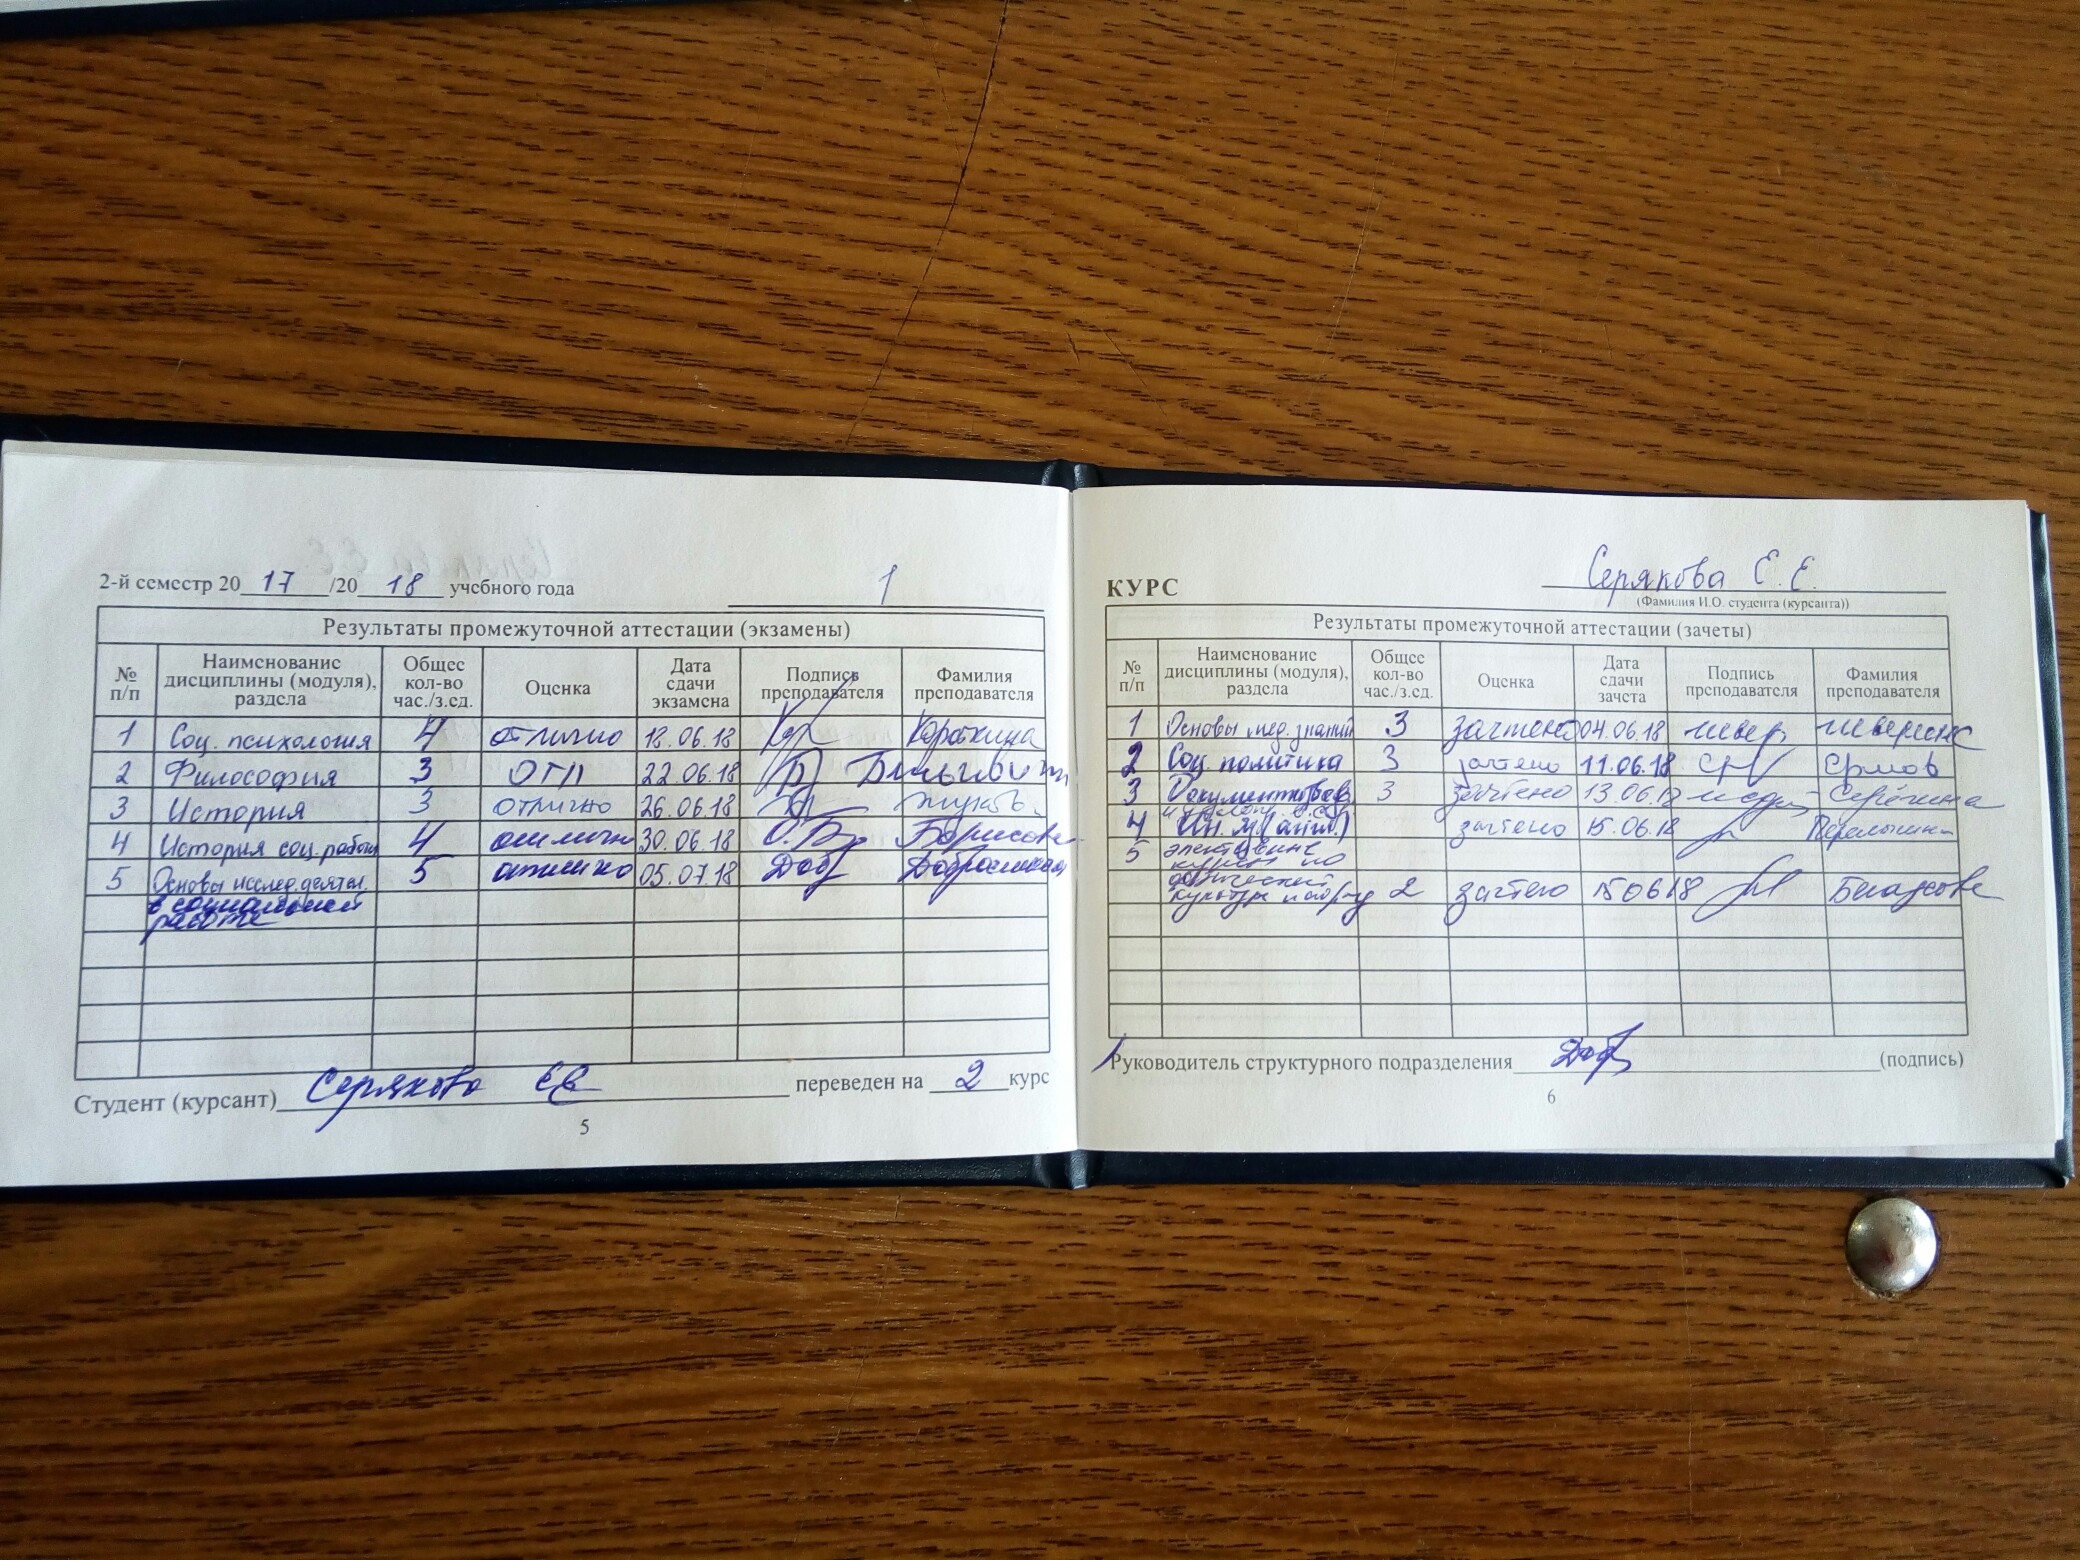 2-й семестр 2017/2018 учебного года 1
Результаты промежуточной аттестации (экзамены)
№ п/п Наименование дисциплины (модуля), раздела Общее кол-во час./з.ед. Оценка Дата сдачи экзамена Подпись преподавателя Фамилия преподавателя
1 Соц. психология 4 отлично 18.06.18 Кор Кораткина
2 Философия 3 ОТЛ 22.06.18
3 История 3 отлично 26.06.18
4 История соц. работы 4 отлично 30.06.18 О.Б. Борисова
5 Основы исслед. деятел. 5 отлично 05.07.18 Доб
в социальной
работе
Студент (курсант) Серякова ЕЕ переведен на 2 курс
5
КУРС Серякова Е. Е.
(Фамилия И.О. студента (курсанта))
Результаты промежуточной аттестации (зачеты)
№ п/п Наименование дисциплины (модуля), раздела Общее кол-во час./з.ед. Оценка Дата сдачи зачета Подпись преподавателя Фамилия преподавателя
1 Основы мед. знаний 3 зачтено 04.06.18
2 Соц. политика 3 зачтено 11.06.18 Ермов
3 Документовед. 3 зачтено 13.06.18 Серёгина
4 Ин. яз (англ.) зачтено 15.06.18
5 элективные
курсы по
физической
культуре и спорту 2 зачтено 150618
Руководитель структурного подразделения Доб (подпись)
6